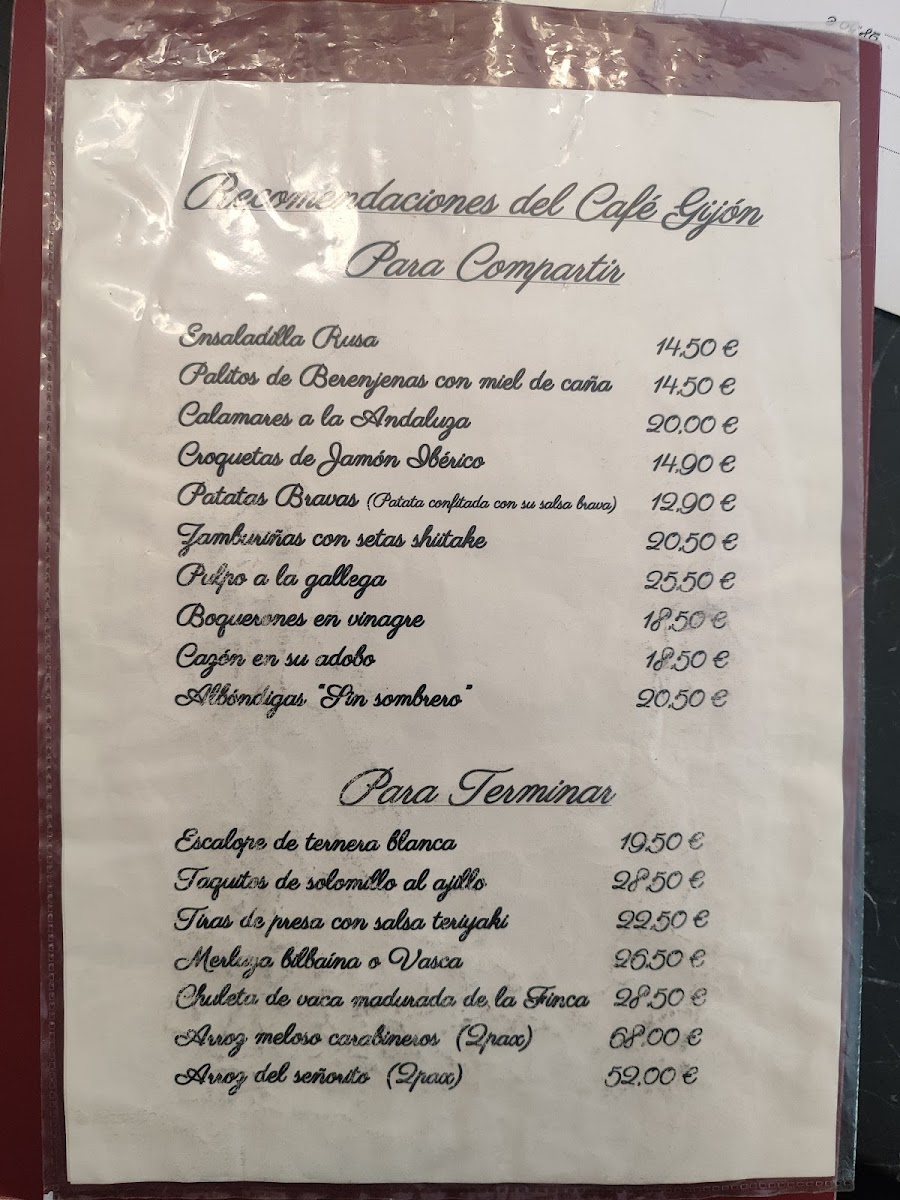 Recomendaciones del Café Gijón
Para Compartir
Ensaladilla Rusa 14,50 €
Palitos de Berenjenas con miel de caña 14,50 €
Calamares a la Andaluza 20,00 €
Croquetas de Jamón Ibérico 14,90 €
Patatas Bravas (Patata confitada con su salsa brava) 12,90 €
Zamburiñas con setas shiitake 20,50 €
Pulpo a la gallega 25,50 €
Boquerones en vinagre 18,50 €
Cazón en su adobo 18,50 €
Albóndigas "Sin sombrero" 20,50 €
Para Terminar
Escalope de ternera blanca 19,50 €
Taquitos de solomillo al ajillo 28,50 €
Tiras de presa con salsa teriyaki 22,50 €
Merluza bilbaína o Vasca 26,50 €
Chuleta de vaca madurada de la Finca 28,50 €
Arroz meloso carabineros (2pax) 68,00 €
Arroz del señorito (2pax) 52,00 €